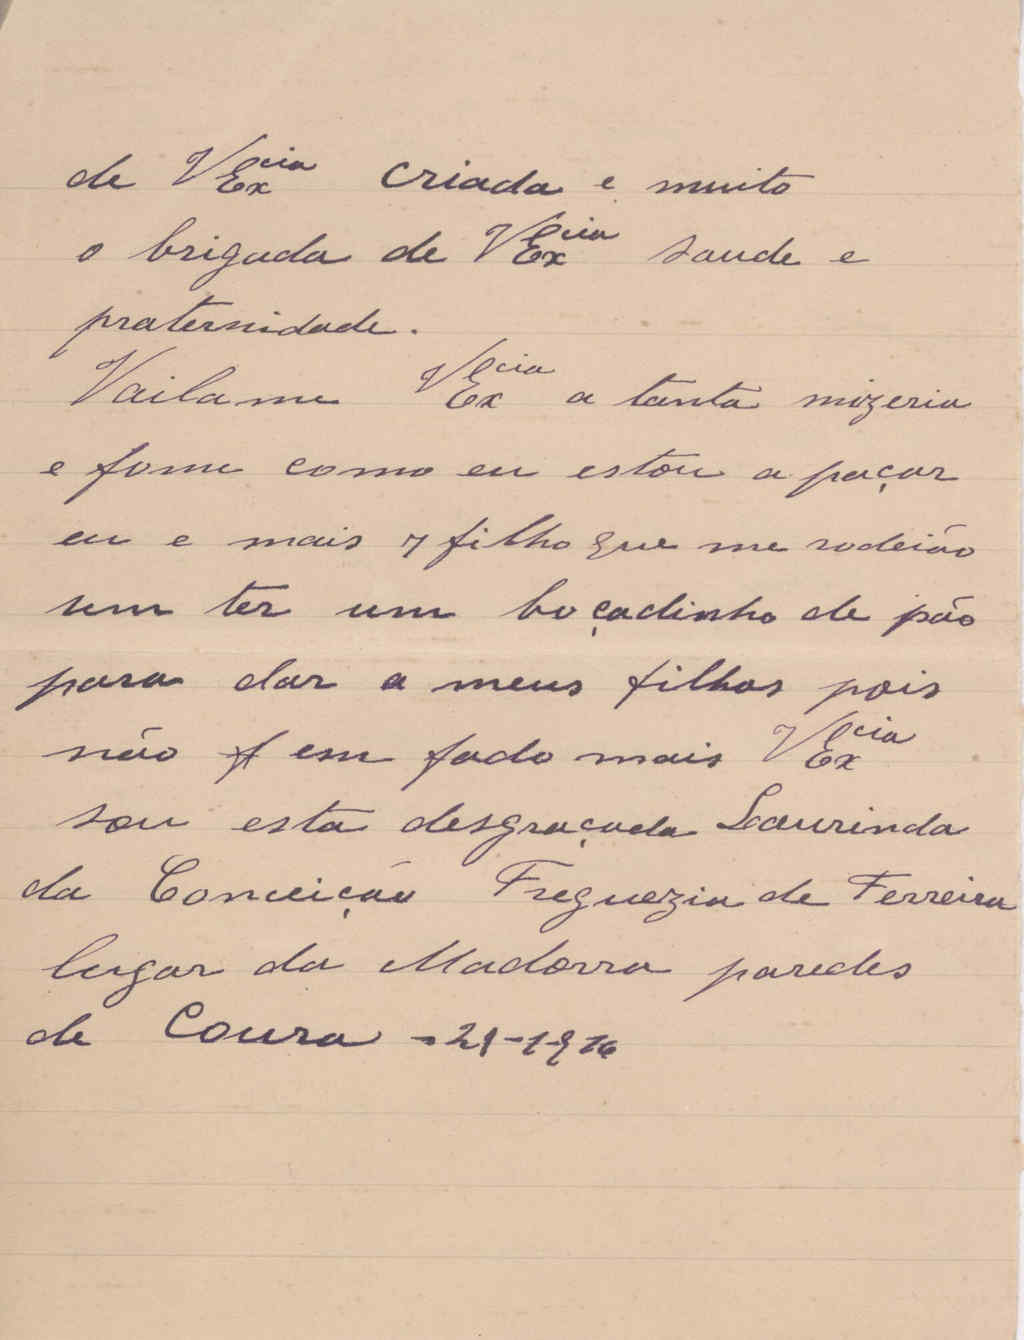 de VEx^cia criada e muito
o brigada de VEx^cia saude e
praternidade.
Vailame VEx^cia a tanta mizeria
e fome como eu estou a paçar
eu e mais 7 filho que me rodeião
sem ter um boçadinho de pão
para dar a meus filhos pois
não f em fado mais VEx^cia
sou esta desgraçada Laurinda
da Conceição Freguezia de Ferreira
lugar da Madorra paredes
de Coura